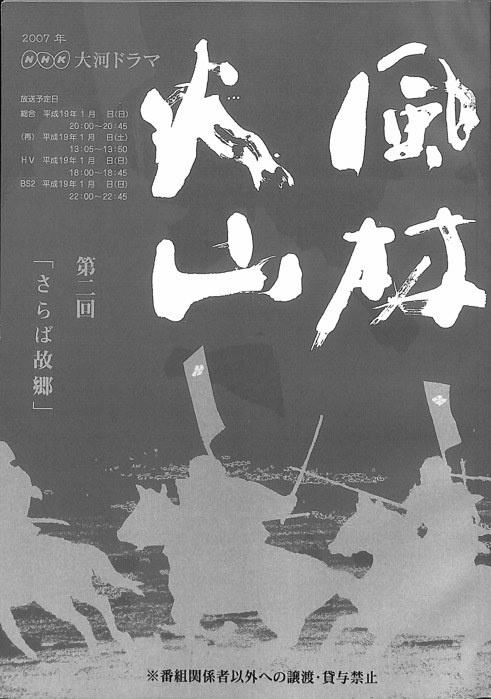 2007年
NHK 大河ドラマ
放送予定日
総合 平成19年1月 日(日)
20:00～20:45
(再) 平成19年1月 日(土)
13:05～13:50
H.V 平成19年1月 日(日)
18:00～18:45
BS2 平成19年1月 日(日)
22:00～22:45
風林
火山
第二回
「さらば故郷」
※番組関係者以外への譲渡・貸与禁止